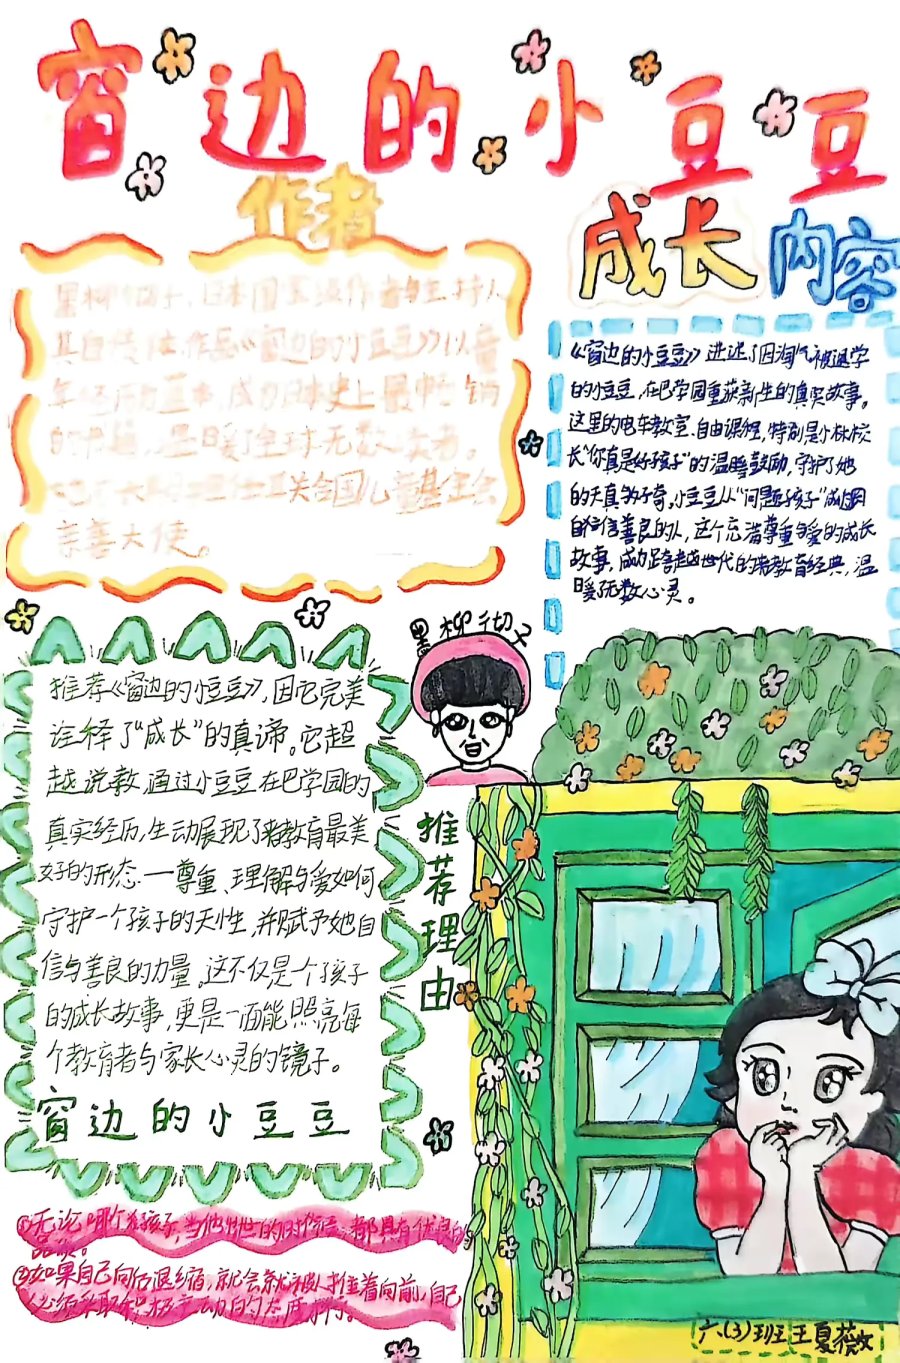 窗边的小豆豆
作者
黑柳彻子，日本国家级作者与主持人
其自传体作品《窗边的小豆豆》以童
年经历 成为日本史上最畅销
的书籍，温暖了全球无数读者。
联合国儿童基金会
亲善大使。
成长内容
《窗边的小豆豆》讲述了因淘气被退学
的小豆豆，在巴学园重获新生的真实故事。
这里的电车教室、自由课程，特别是小林校
长“你真是好孩子”的温暖鼓励，守护了她
的天真与好奇。小豆豆从“问题孩子”成长为
自信善良的人，这个充满尊重与爱的成长
故事，成功跨越世代的教育经典，温
暖了无数心灵。
黑柳彻子
推荐理由
推荐《窗边的小豆豆》，因它完美
诠释了“成长”的真谛。它超
越说教，通过小豆豆在巴学园的
真实经历，生动展现了教育最美
好的形态一尊重、理解与爱如何
守护一个孩子的天性，并赋予她自
信与善良的力量。这不仅是个孩子
的成长故事，更是一面能照亮每
个教育者与家长心灵的镜子。
窗边的小豆豆
①无论哪个孩子，当他出世的时候，都具有优良的
品质。
②如果自己向后退缩，就会被人推着向前，自己
必须采取积极主动的态度才行。
六(3)班王夏薇